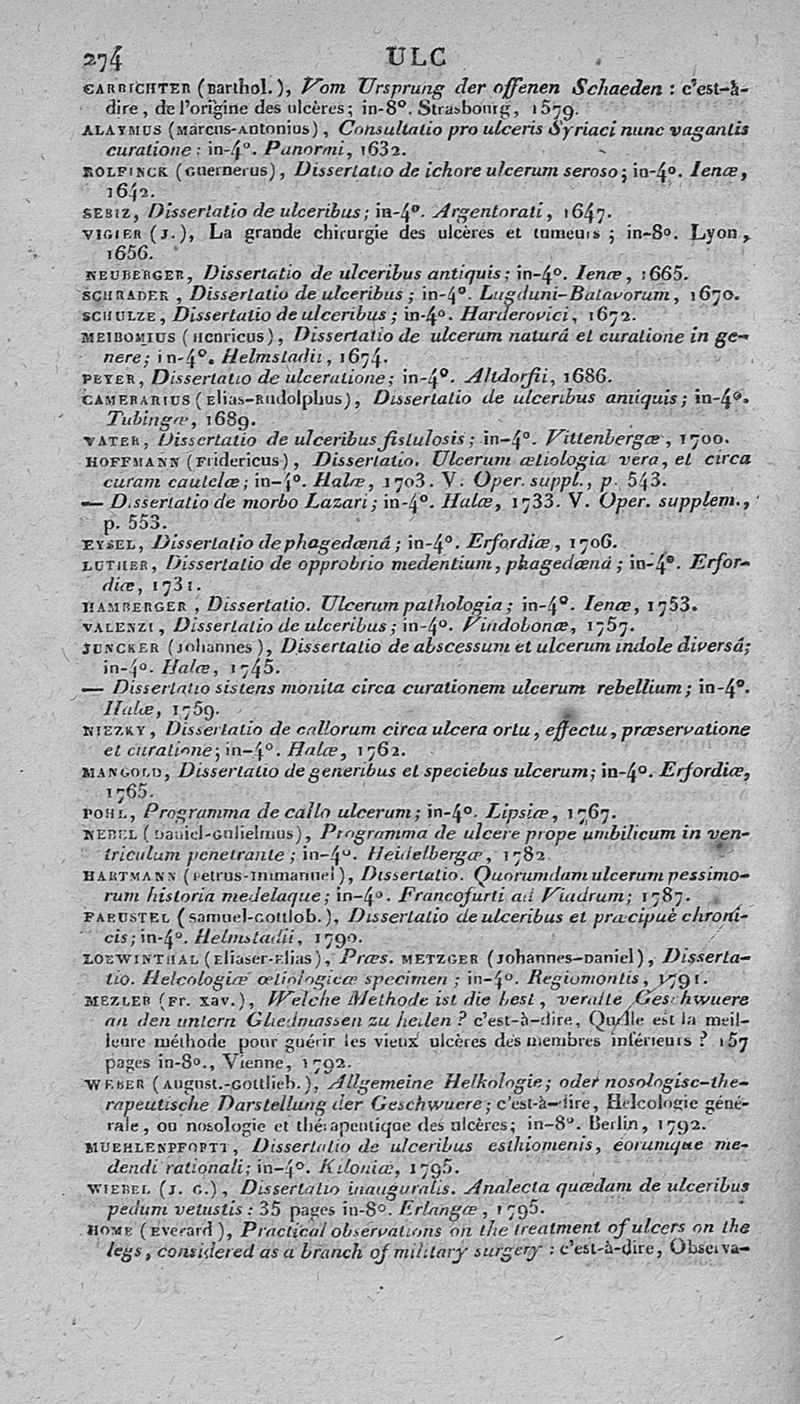 274 ULC
CARRICHTER (Barthol.), Vom Ursprung der offenen Schaeden : c'est-à-
dire, de l'origine des ulcères; in-8°. Strasbourg, 1579.
ALAYMUS (Marcus-Antonius), Consultatio pro ulceris Syriaci nunc vagantis
curatione : in-4°. Panormi, 1632.
ROLFINCK (Guernerus), Dissertatio de ichore ulcerum seroso; in-4°. Ienæ,
1642.
SEBIZ, Dissertatio de ulceribus; in-4°. Argentorati, 1647.
VIGIER (J.), La grande chirurgie des ulcères et tumeurs ; in-8°. Lyon,
1656.
NEUBERGER, Dissertatio de ulceribus antiquis; in-4°. Ienæ, 1665.
SCHRADER , Dissertatio de ulceribus ; in-4°. Lugduni-Batavorum, 1670.
SCHULZE, Dissertatio de ulceribus; in-4°. Harderovici, 1672.
MEIBOMIUS (Henricus), Dissertatio de ulcerum naturâ et curatione in ge-
nere; in-4°. Helmstadii, 1674.
PEYER, Dissertatio de ulceratione; in-4°. Altdorfii, 1686.
CAMERARIUS (Elias-Rudolphus), Dissertatio de ulceribus antiquis; in-4°.
Tubingæ, 1689.
VATER, Dissertatio de ulceribus fistulosis; in-4°. Vittenbergæ, 1700.
HOFFMANN (Fridericus), Dissertatio. Ulcerum ætiologia vera, et circa
curam cautelæ; in-4°. Halæ, 1703. V. Oper. suppl., p. 543.
— Dissertatio de morbo Lazari; in-4°. Halæ, 1733. V. Oper. supplem.,
p. 553.
EYSEL, Dissertatio de phagedænâ ; in-4°. Erfordiæ, 1706.
LUTHER, Dissertatio de opprobrio medentium, phagedænâ ; in-4°. Erfor-
diæ, 1731.
HAMBERGER , Dissertatio. Ulcerum pathologia; in-4°. Ienæ, 1753.
VALENZI, Dissertatio de ulceribus; in-4°. Vindobonæ, 1757.
JUNCKER (Johannes), Dissertatio de abscessum et ulcerum indole diversâ;
in-4°. Halæ, 1745.
— Dissertatio sistens monita circa curationem ulcerum rebellium; in-4°.
Halæ, 1759.
NIEZKY, Dissertatio de callorum circa ulcera ortu, effectu, præservatione
et curatione; in-4°. Halæ, 1762.
MANGOLD, Dissertatio de generibus et speciebus ulcerum; in-4°. Erfordiæ,
1765.
POHL, Programma de callo ulcerum; in-4°. Lipsiæ, 1767.
NEBEL (Daniel-Gulielmus), Programma de ulcere prope umbilicum in ven-
triculum penetrante ; in-4°. Heidelbergæ, 1782
HARTMANN (Petrus-Immanuel), Dissertatio. Quorumdam ulcerum pessimo-
rum historia medelaque; in-4°. Francofurti ad Viadrum; 1787.
FABUSTEL (Samuel-Gottlob.), Dissertatio de ulceribus et præcipuè chroni-
cis; in-4°. Helmstadii, 1790.
LOEWINTHAL (Eliaser-Elias), Præs. METZGER (Johannes-Daniel), Disserta-
tio. Helcologiæ ætiologicæ specimen ; in-4°. Regiomontis, 1791.
MEZLER (Fr. Xav.), Welche Methode ist die best, veralte Geschwuere
an den untern Gliedmassen zu heilen ? c'est-à-dire, Quelle est la meil-
leure méthode pour guérir les vieux ulcères des membres inférieurs ? 157
pages in-8°., Vienne, 1792.
WEBER (August.-Gottlieb.), Allgemeine Helkologie; oder nosologisc-the-
rapeutische Darstellung der Geschwuere; c'est-à-dire, Helcologie géné-
rale, ou nosologie et thérapeutique des ulcères; in-8°. Berlin, 1792.
MUEHLENPFORTT, Dissertatio de ulceribus esthiomenis, eorumque me-
dendi rationali; in-4°. Kiloniæ, 1795.
WIEBEL (J. G.), Dissertatio inauguralis. Analecta quædam de ulceribus
pedum vetustis : 35 pages in-8°. Erlangæ, 1795.
HOME (Everard), Practical observations on the treatment of ulcers on the
legs, considered as a branch of military surgery : c'est-à-dire, Observa-